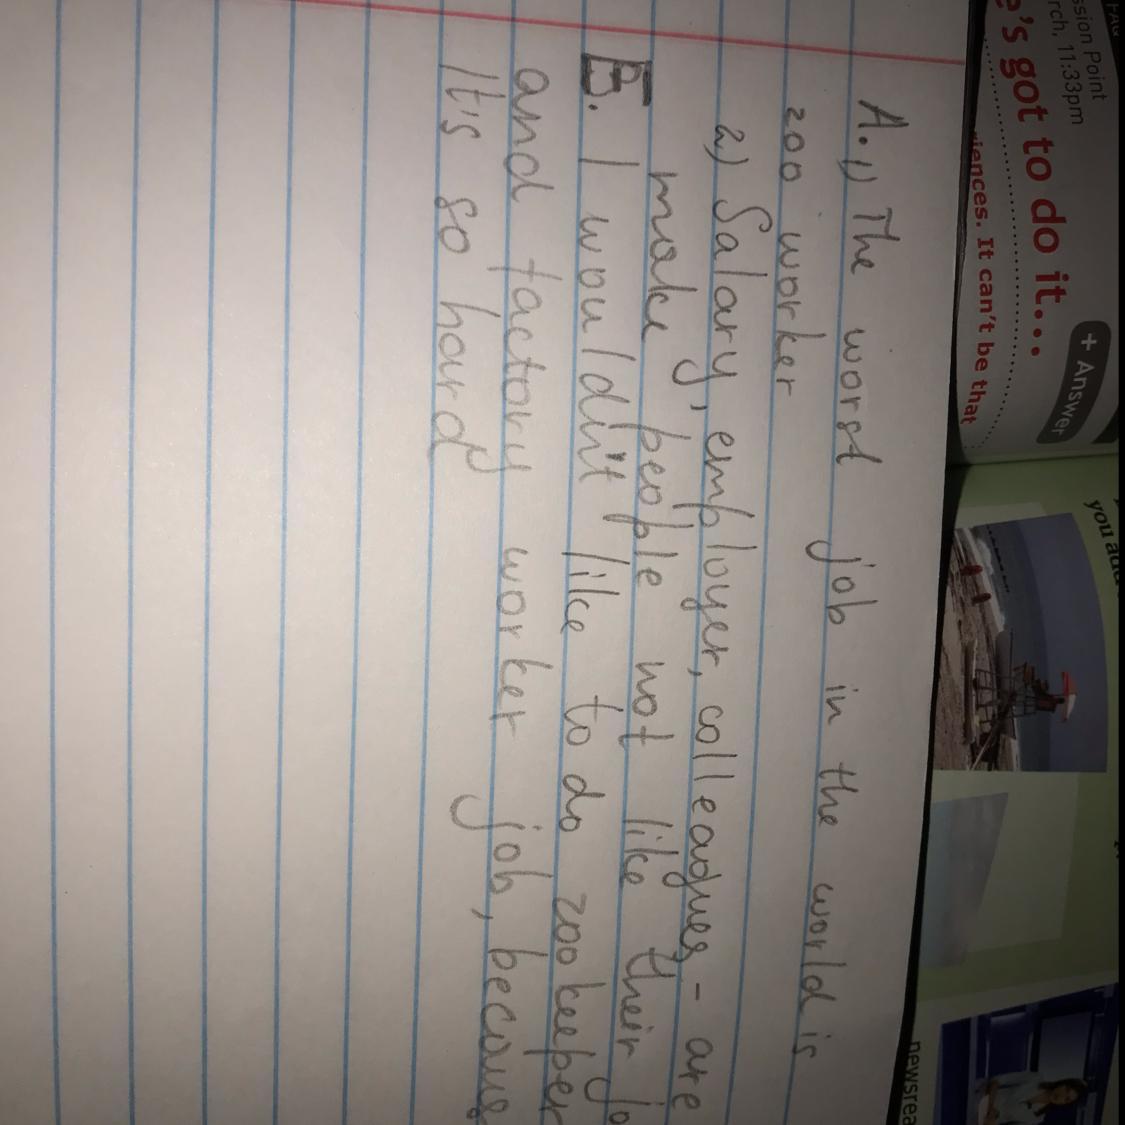 A. 1) The worst job in the world is
zoo worker
2) Salary, employer, colleagues - are
make people not like their jo
B. I wouldn't like to do zookeeper
and factory worker job, becaus
It's so hard
ssion Point
rch, 11:33pm
e's got to do it...
riences. It can't be that
+ Answer
you
newsrea